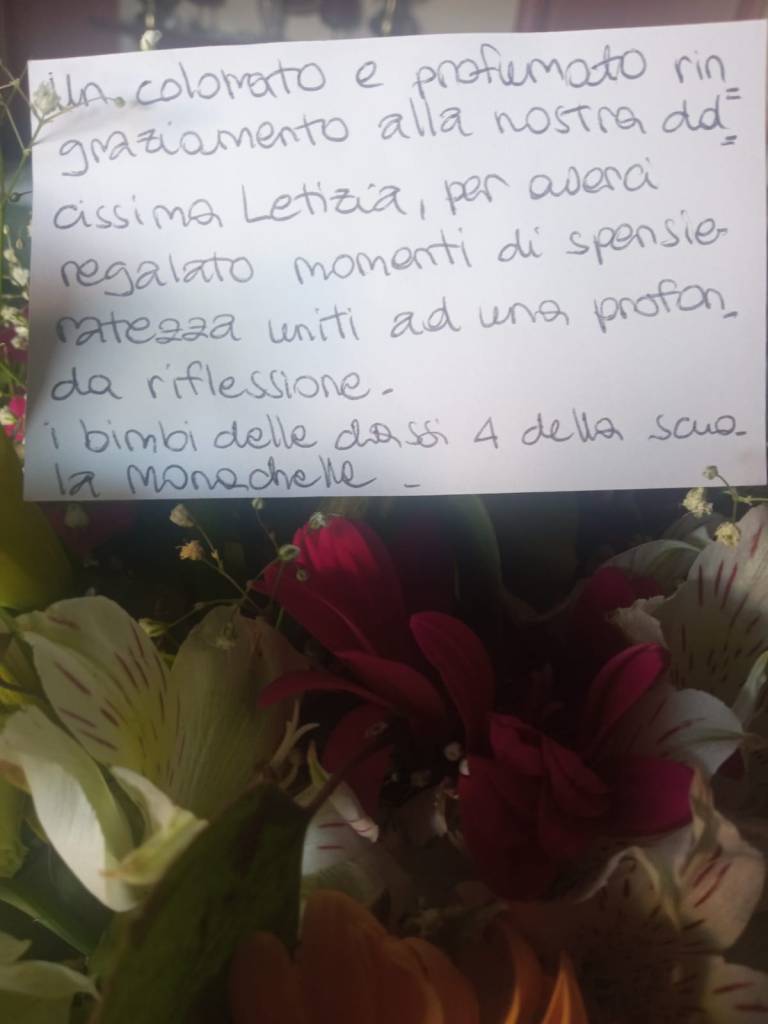 Un colorato e profumato rin=
graziamento alla nostra dol=
cissima Letizia, per averci
regalato momenti di spensie-
ratezza uniti ad una profon-
da riflessione.
i bimbi delle classi 4 della scuo-
la Monachelle -